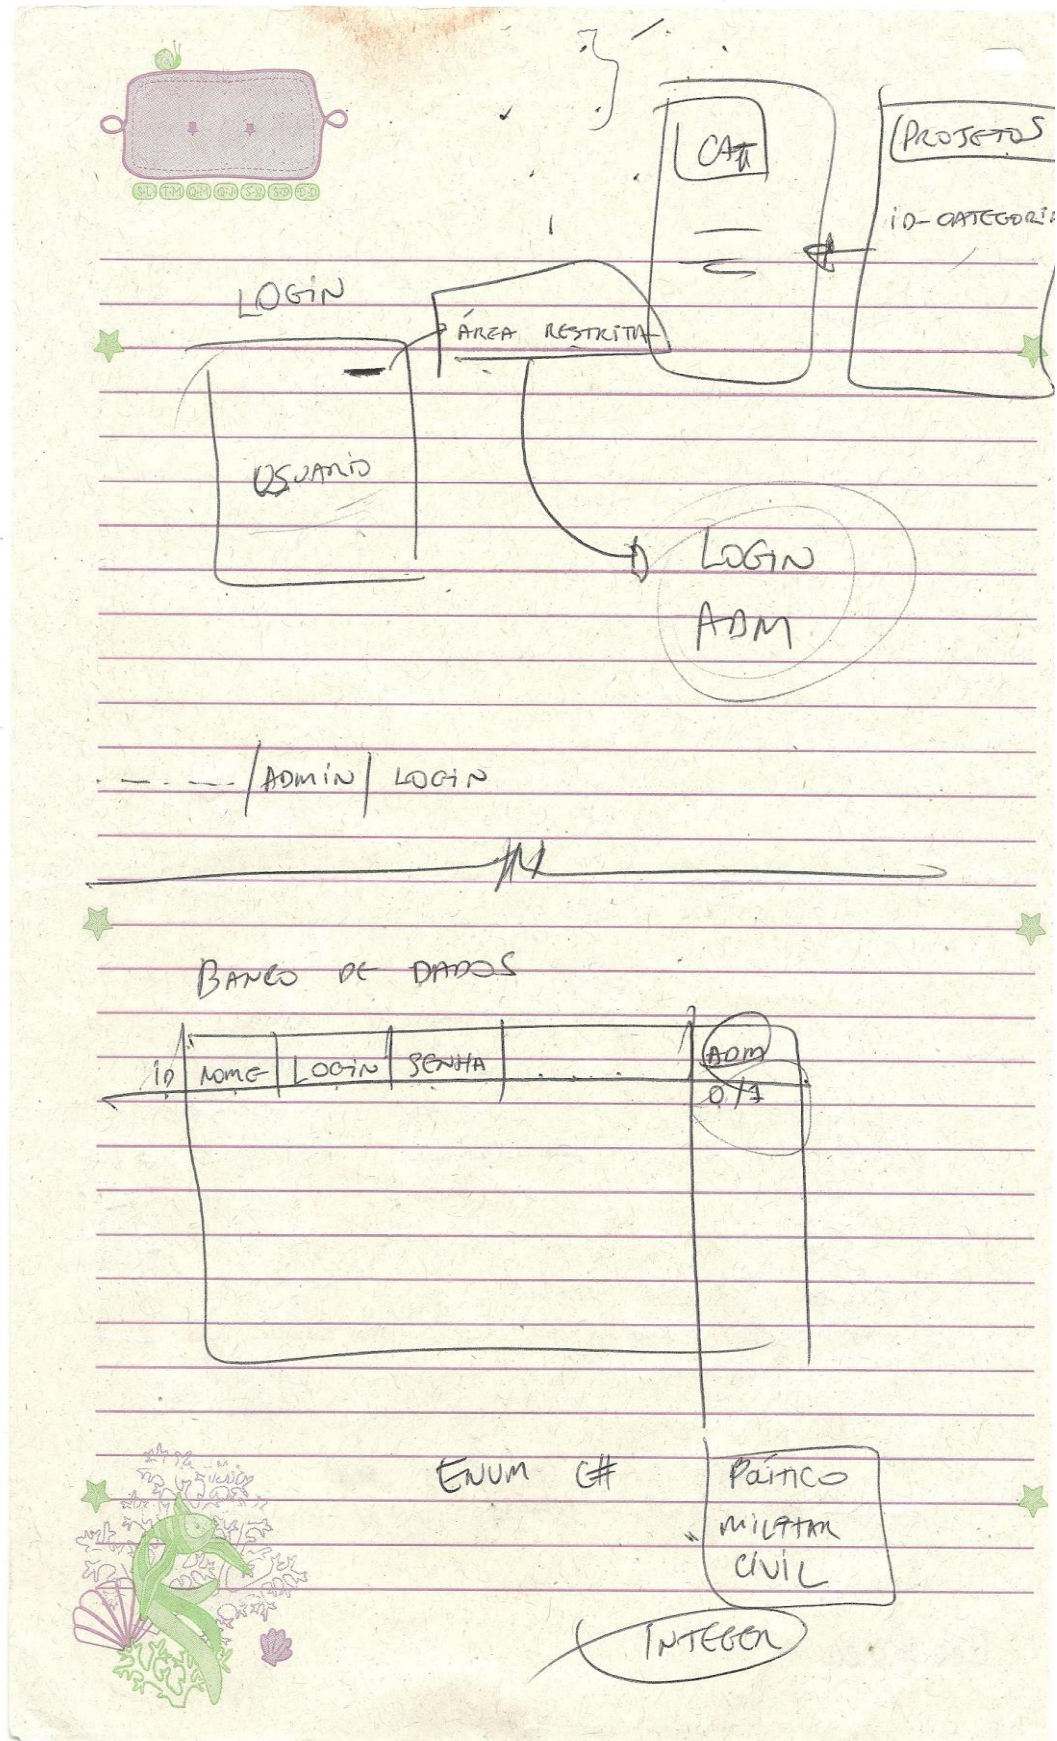 PROJETOS
ID-CATEGORIA
LOGIN
ÁREA RESTRITA
USUARIO
LOGIN
ADM
/ADMIN/ LOGIN
BANCO DE DADOS
ID NOME LOGIN SENHA ..... ADM
0/1
ENUM C#
POÍTICO
MILITAR
CIVIL
INTEGER